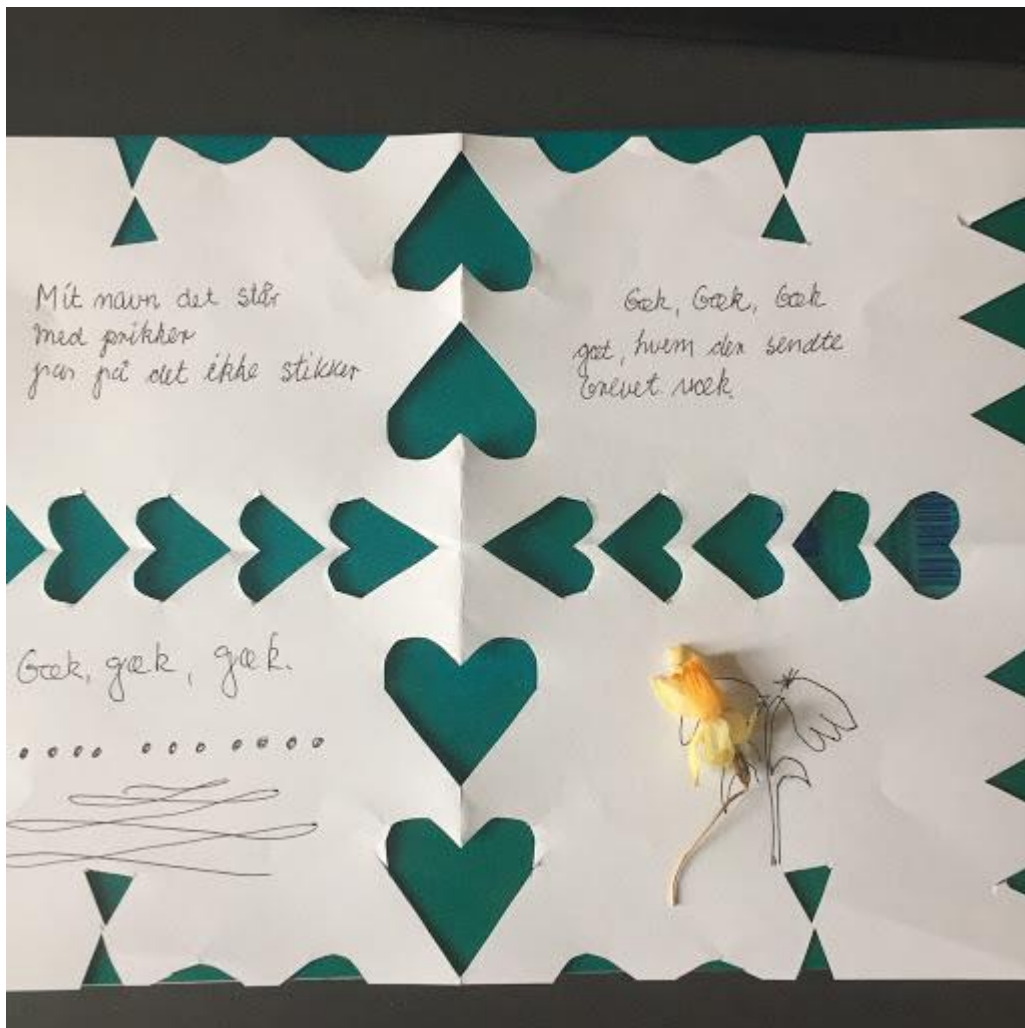 Mit navn det står
med prikker
pas på det ikke stikker
Gæk, Gæk, Gæk
gæt, hvem der sendte
brevet væk.
Gæk, gæk, gæk.